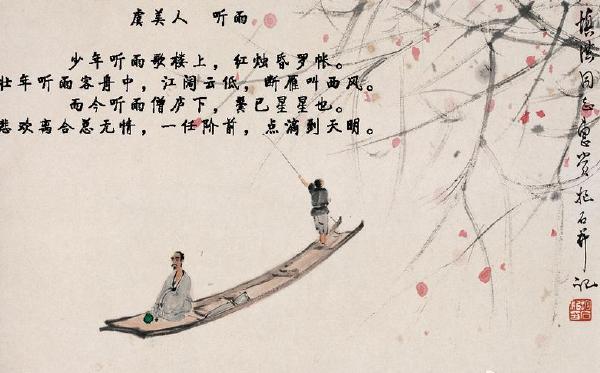 虞美人　听雨
少年听雨歌楼上，红烛昏罗帐。
壮年听雨客舟中，江阔云低，断雁叫西风。
而今听雨僧庐下，鬓已星星也。
悲欢离合总无情，一任阶前，点滴到天明。
同志惠赏抱石并记